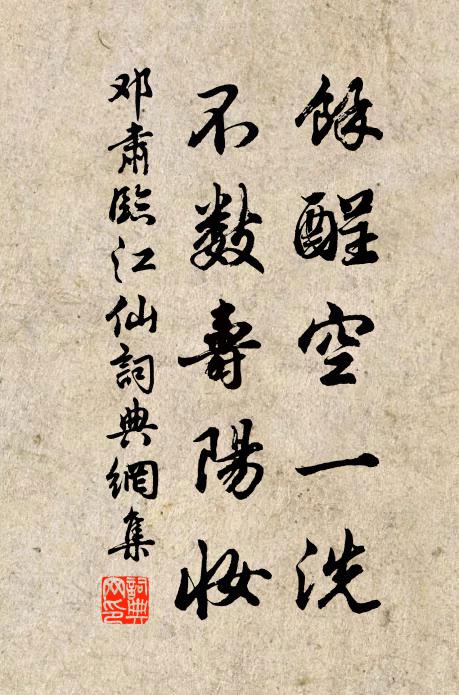 餘酲空一洗
不數壽陽妝
邓肅臨江仙詞典網集
詞典